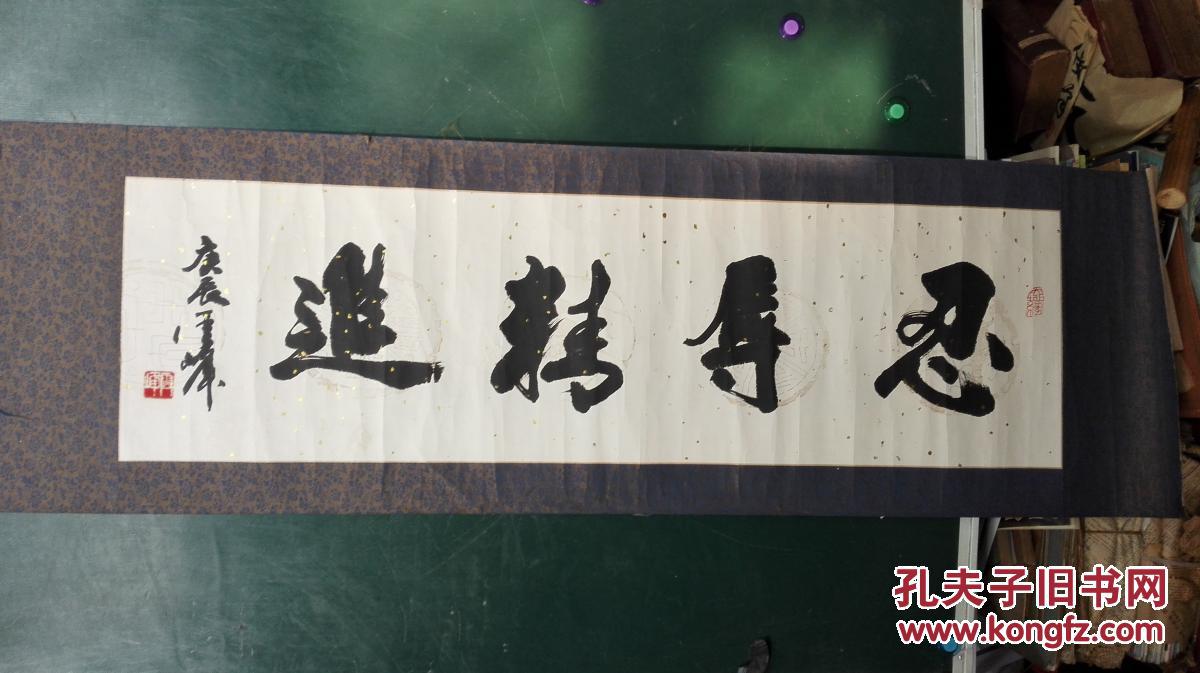 忍辱精進
庚辰
孔夫子旧书网
www.kongfz.com